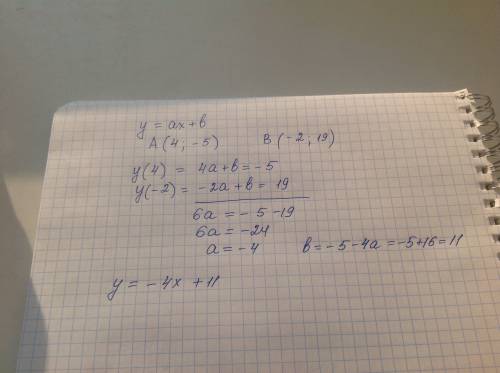 y = ax + b
A (4; -5) B (-2; 19)
y(4) = 4a + b = -5
y(-2) = -2a + b = 19
6a = -5 - 19
6a = -24
a = -4 b = -5 - 4a = -5 + 16 = 11
y = -4x + 11